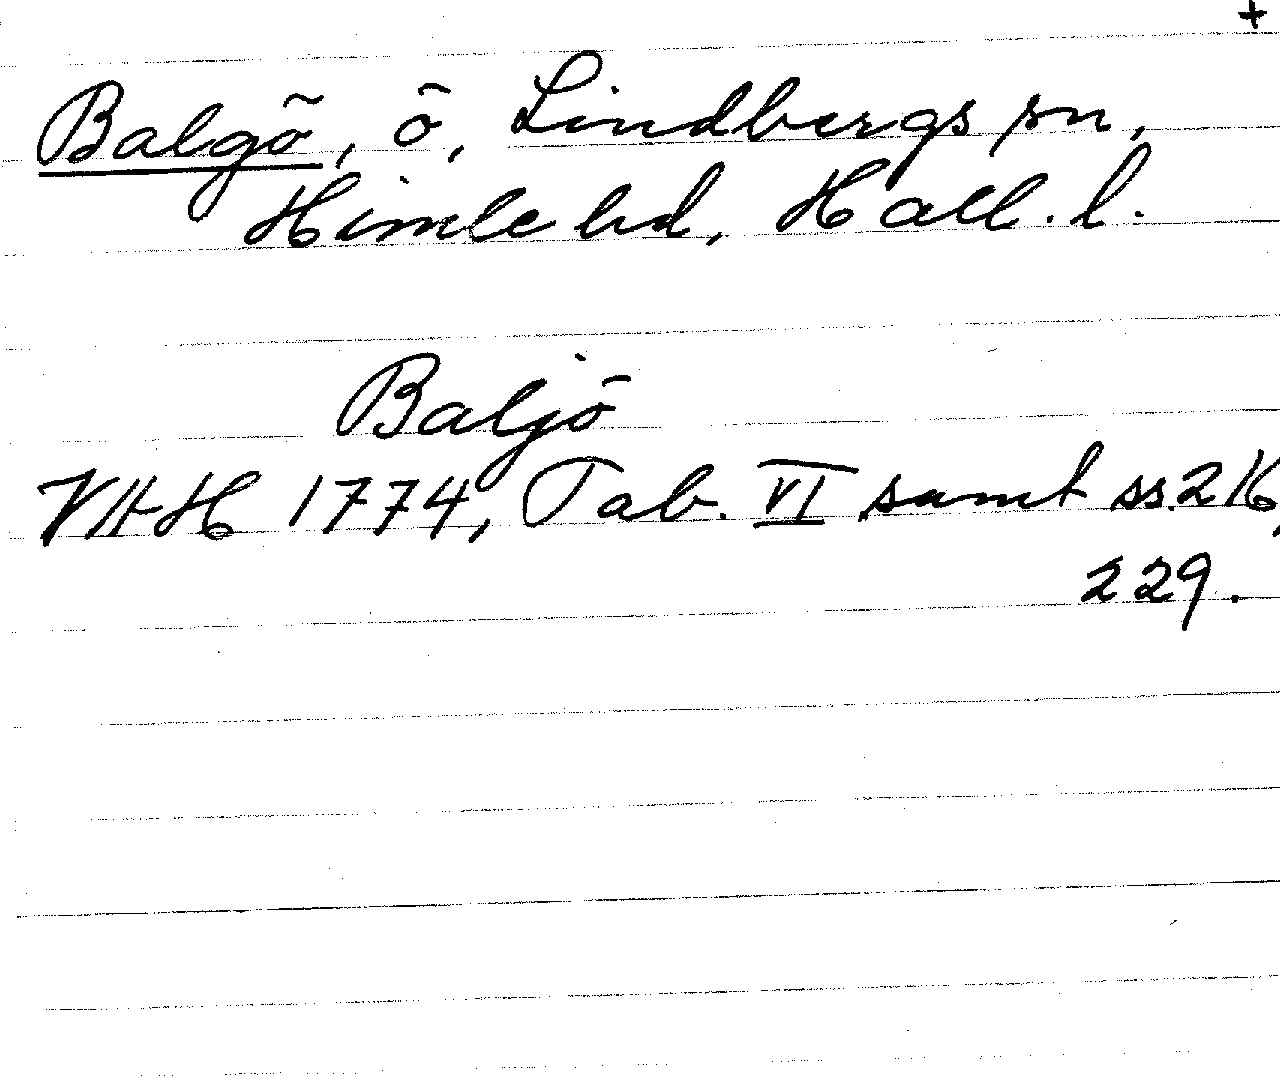 +
Balgö, ö, Lindbergs sn,
Himle hd, Hall. l.
Baljö
1774, Tab. VI samt ss. 216,
229.